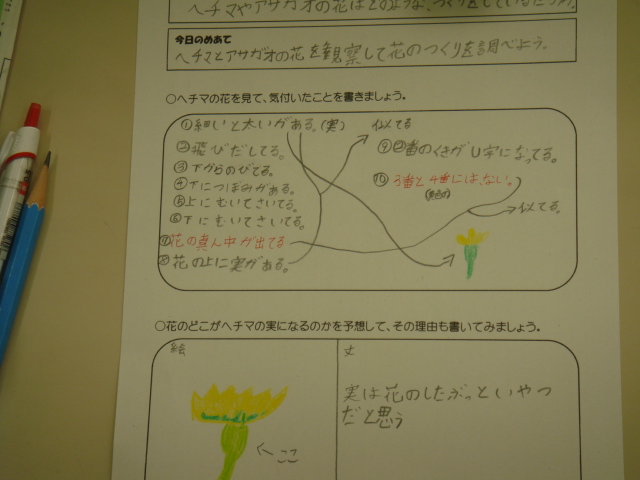 ヘチマやアサガオの花はどのような、つくりをしているだろうか
今日のめあて
ヘチマとアサガオの花を観察して花のつくりを調べよう。
○ヘチマの花を見て、気付いたことを書きましょう。
①細いと太いがある。(実)
②飛びだしてる。
③下からのびてる。
④下につぼみがある。
⑤上にむいてさいてる。
⑥下にむいてさいてる。
⑦花の真ん中が出てる
⑧花の上に実がある。
似てる
⑨②番のくきがU字になってる。
⑩3番と4番にはない。
似てる。
○花のどこがヘチマの実になるのかを予想して、その理由も書いてみましょう。
絵
ここ
文
実は花のしたぶっといやつ
だと思う